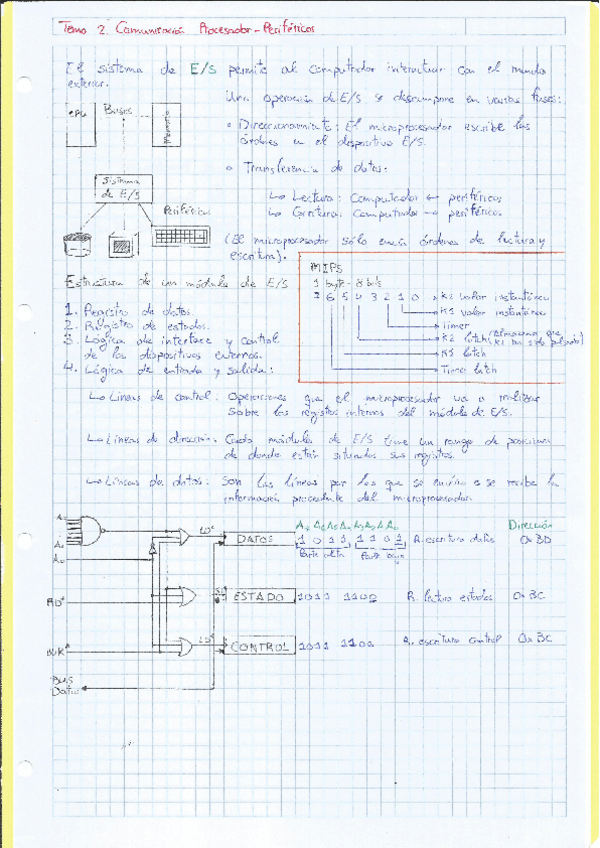 Tema 2. Comunicación Procesador-Periféricos
El sistema de E/S permite al computador interactuar con el mundo
exterior.
Una operación de E/S se descompone en varias fases:
CPU Buses Memoria
• Direccionamiento: El microprocesador escribe las
órdenes en el dispositivo E/S.
• Transferencia de datos:
Sistema
de E/S
↳ Lectura: Computador ← periféricos
↳ Escritura: Computador → periféricos
Periféricos
(El microprocesador sólo envía órdenes de lectura y
escritura).
Estructura de un módulo de E/S
1. Registro de datos.
2. Registro de estados.
3. Lógica de interface y control
de los dispositivos externos.
4. Lógica de entrada y salida:
MIPS
1 byte - 8 bits
7 6 5 4 3 2 1 0 → K2 valor instantáneo
→ K1 valor instantáneo
→ Timer
→ K2 latch (Almacena que
K2 ha sido pulsado)
→ K1 latch
→ Timer latch
↳ Líneas de control: Operaciones que el microprocesador va a realizar
sobre los registros internos del módulo de E/S.
↳ Líneas de dirección: Cada módulo de E/S tiene un rango de posiciones
de donde están situados sus registros.
↳ Líneas de datos: Son las líneas por las que se envía o se recibe la
información procedente del microprocesador.
A₇ A₆ A₅ A₄ A₃ A₂ A₁ A₀ Dirección
A₇
A₁
A₀
LD*
DATOS 1 0 1 1 1 1 0 1 R. escritura datos 0xBD
Parte alta Parte baja
RD*
ESTADO 1011 1100 R. lectura estados 0xBC
WR*
LD*
CONTROL 1011 1100 R. escritura control 0xBC
Bus
Datos